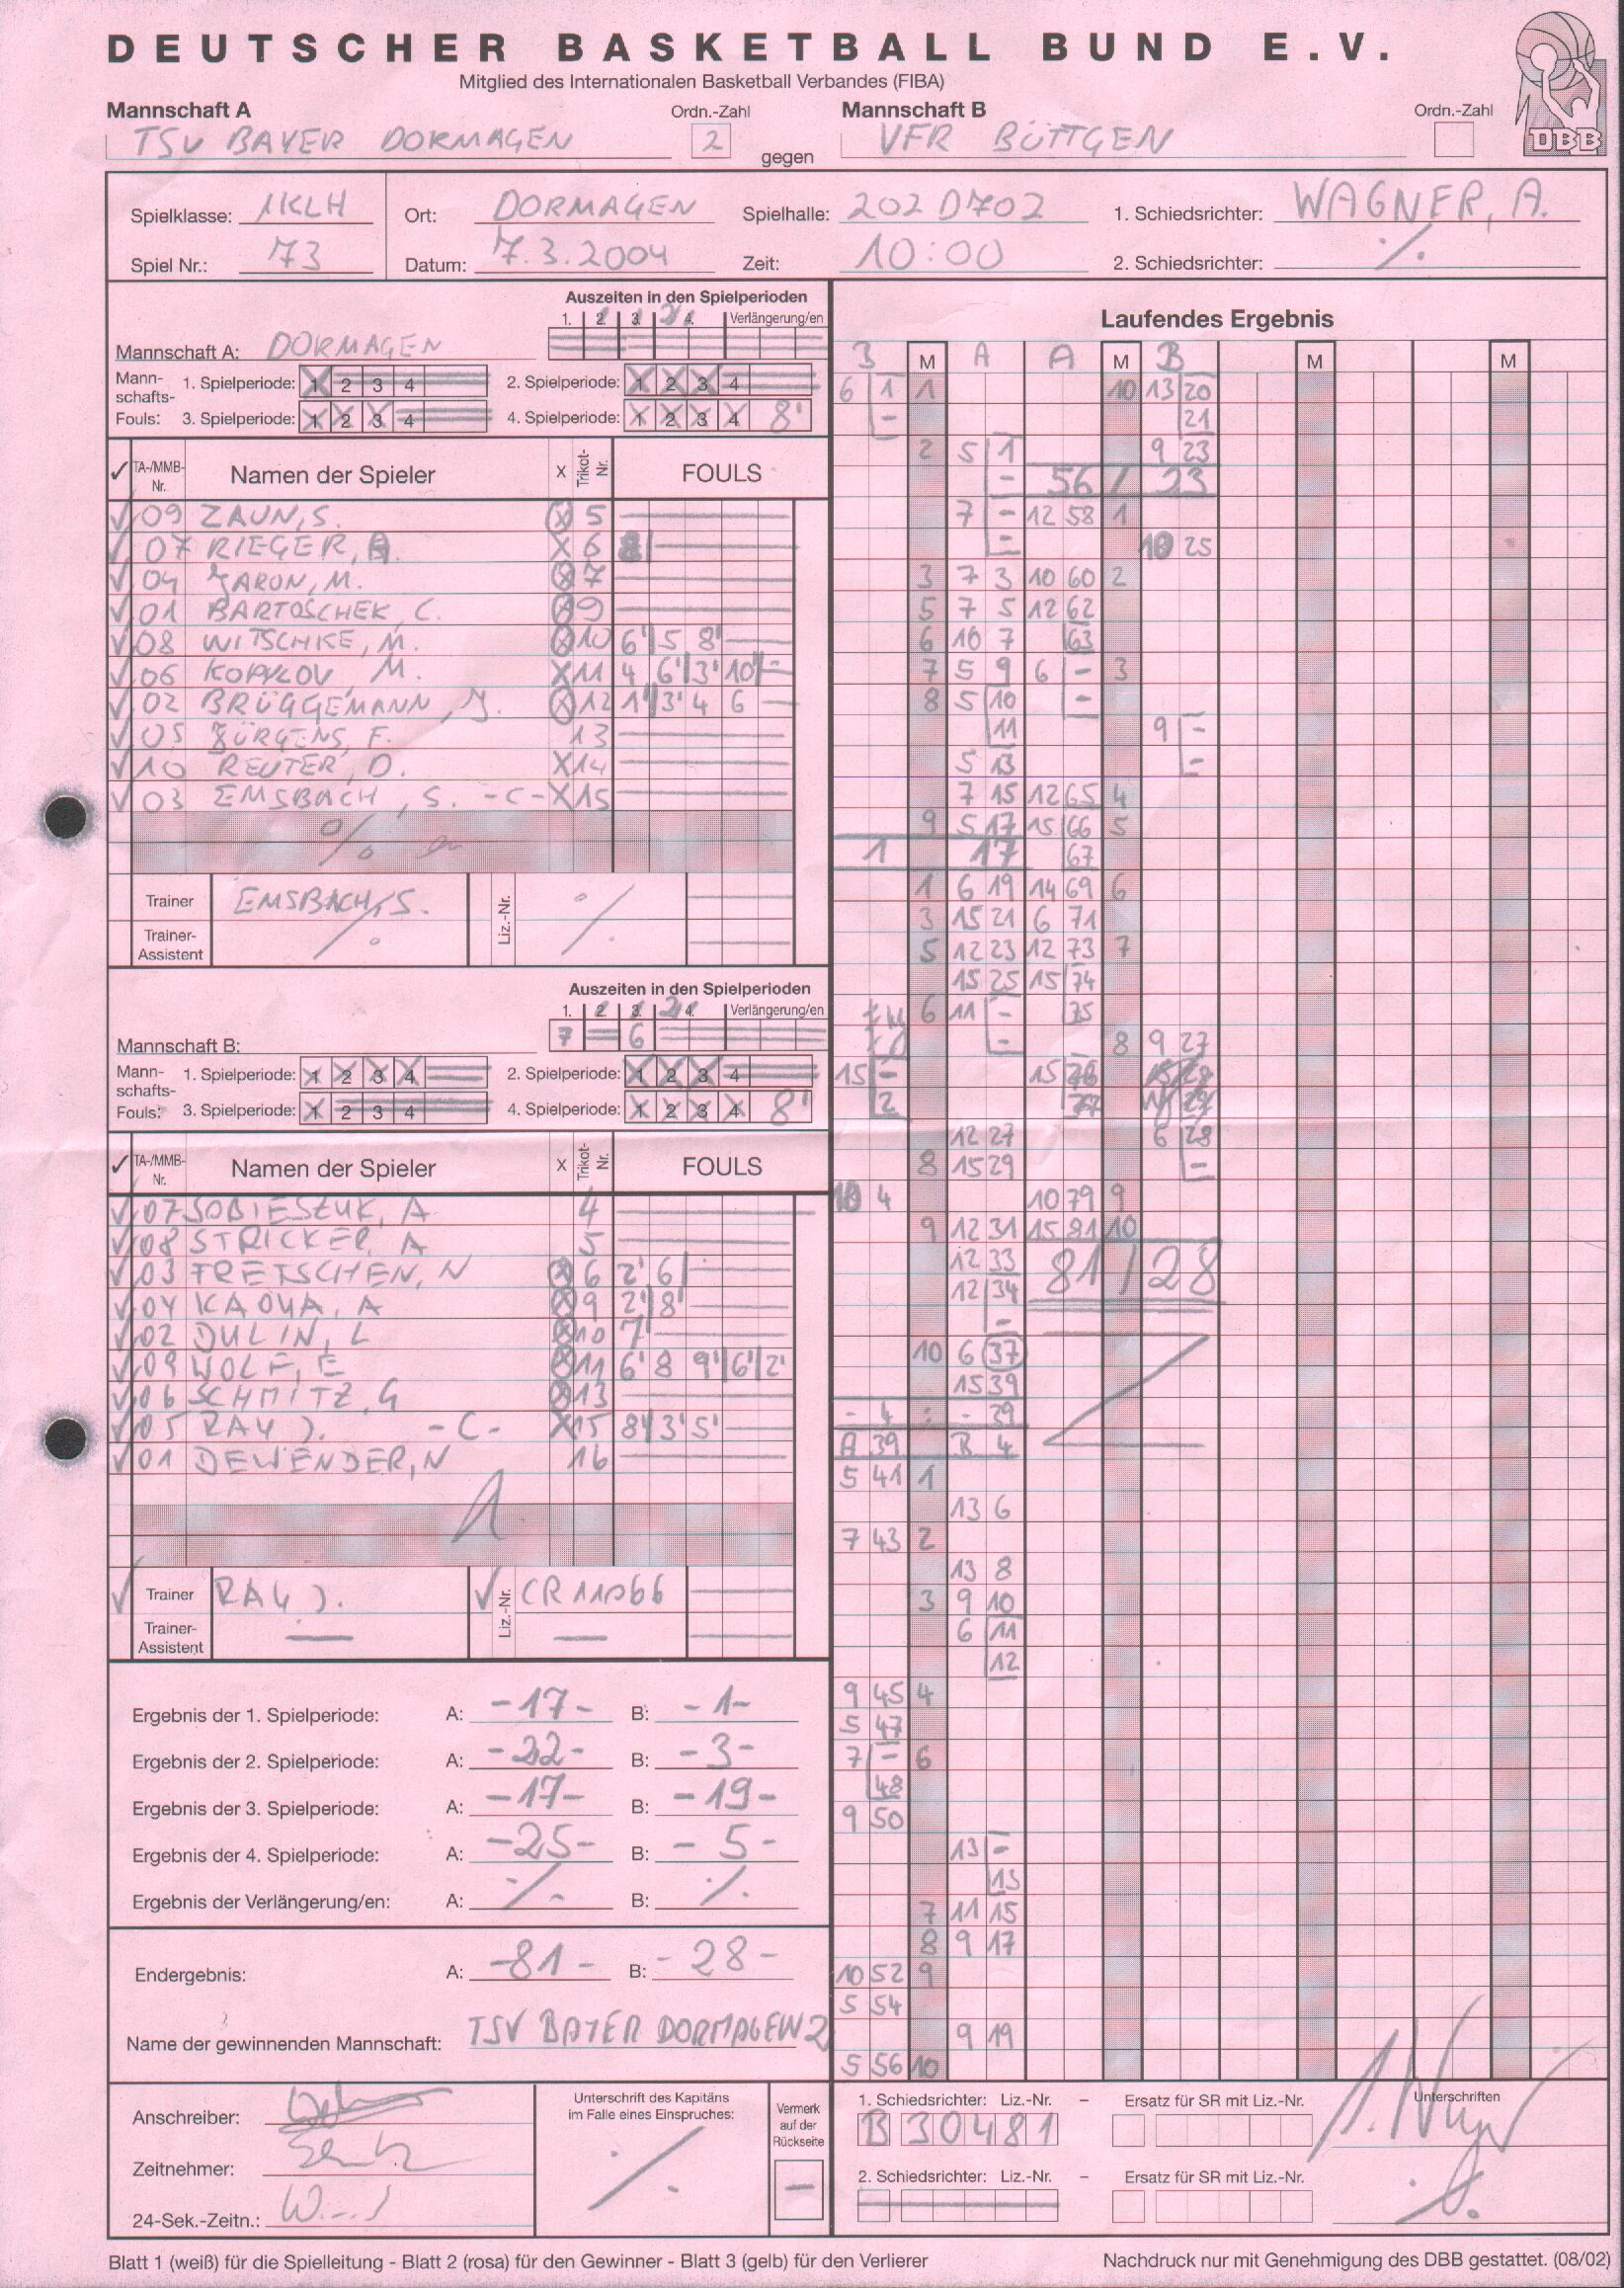 DEUTSCHER BASKETBALL BUND E.V.
Mitglied des Internationalen Basketball Verbandes (FIBA)
Mannschaft A Ordn.-Zahl Mannschaft B Ordn.-Zahl
TSV BAYER DORMAGEN 2 gegen VFR BÜTTGEN
DBB
Spielklasse: 1KLH Ort: DORMAGEN Spielhalle: 202 D702 1. Schiedsrichter: WAGNER, A.
Spiel Nr.: 73 Datum: 7.3.2004 Zeit: 10:00 2. Schiedsrichter: ./.
Auszeiten in den Spielperioden
1. 2. 3. 4. Verlängerung/en
Mannschaft A: DORMAGEN
Mannschafts-Fouls:
1. Spielperiode: 1 2 3 4 2. Spielperiode: 1 2 3 4
3. Spielperiode: 1 2 3 4 4. Spielperiode: 1 2 3 4 8'
✓ TA-/MMB-Nr. Namen der Spieler X Trikot-Nr. FOULS
✓ 09 ZAUN, S. X 5
✓ 07 RIEGER, A. X 6
✓ 04 JARON, M. X 7
✓ 01 BARTOSCHEK, C. X 9
✓ 08 WITSCHKE, M. X 10 6' 5 8'
✓ 06 KOPYLOV, M. X 11 4 6' 3' 10'
✓ 02 BRÜGGEMANN, J. X 12 1' 3' 4 6
✓ 05 JÜRGENS, F. 13
✓ 10 REUTER, D. X 14
✓ 03 EMSBACH, S. -C- X 15
Trainer EMSBACH, S. Liz.-Nr. ./.
Trainer-Assistent ./.
Auszeiten in den Spielperioden
1. 2. 3. 4. Verlängerung/en
7 6
Mannschaft B:
Mannschafts-Fouls:
1. Spielperiode: 1 2 3 4 2. Spielperiode: 1 2 3 4
3. Spielperiode: 1 2 3 4 4. Spielperiode: 1 2 3 4 8'
✓ TA-/MMB-Nr. Namen der Spieler X Trikot-Nr. FOULS
✓ 07 SOBIESZUK, A 4
✓ 08 STRICKER, A 5
✓ 03 FRETSCHEN, N X 6 2' 6
✓ 04 KAOUA, A X 9 2' 8'
✓ 02 DULIN, L X 10 7
✓ 09 WOLF, E X 11 6' 8 9' 6' 2'
✓ 06 SCHMITZ, G X 13
✓ 05 RAY J. -C- X 15 8' 3' 5'
✓ 01 DEWENDER, N 16
✓ Trainer RAY J. ✓ Liz.-Nr. CR 11066
Trainer-Assistent — —
Ergebnis der 1. Spielperiode: A: -17- B: -1-
Ergebnis der 2. Spielperiode: A: -22- B: -3-
Ergebnis der 3. Spielperiode: A: -17- B: -19-
Ergebnis der 4. Spielperiode: A: -25- B: -5-
Ergebnis der Verlängerung/en: A: ./. B: ./.
Endergebnis: A: -81- B: -28-
Name der gewinnenden Mannschaft: TSV BAYER DORMAGEN 2
Anschreiber:
Zeitnehmer:
24-Sek.-Zeitn.:
Unterschrift des Kapitäns
im Falle eines Einspruches:
./.
Vermerk
auf der
Rückseite
—
Laufendes Ergebnis
M A A M B M M
6 1 1 10 13 20
- 21
2 5 1 9 23
- 56 / 23
7 - 12 58 1
- 10 25
3 7 3 10 60 2
5 7 5 12 62
6 10 7 63
7 5 9 6 - 3
8 5 10 -
11 9 -
5 13 -
7 15 12 65 4
9 5 17 15 66 5
1 17 67
1 6 19 14 69 6
3 15 21 6 71
5 12 23 12 73 7
15 25 15 74
6 11 - 75
- 8 9 27
15 - 15 76
2 77
12 27 6 28
8 15 29 -
10 4 10 79 9
9 12 31 15 81 10
12 33 81 / 28
12 34
-
10 6 37
15 39
- 4 : - 39
A 39 B 4
5 41 1
13 6
7 43 2
13 8
3 9 10
6 11
12
9 45 4
5 47
7 - 6
48
9 50
13 -
13
7 11 15
8 9 17
10 52 9
5 54
9 19
5 56 10
1. Schiedsrichter: Liz.-Nr. – Ersatz für SR mit Liz.-Nr. Unterschriften
B 30481
2. Schiedsrichter: Liz.-Nr. – Ersatz für SR mit Liz.-Nr.
Blatt 1 (weiß) für die Spielleitung - Blatt 2 (rosa) für den Gewinner - Blatt 3 (gelb) für den Verlierer
Nachdruck nur mit Genehmigung des DBB gestattet. (08/02)